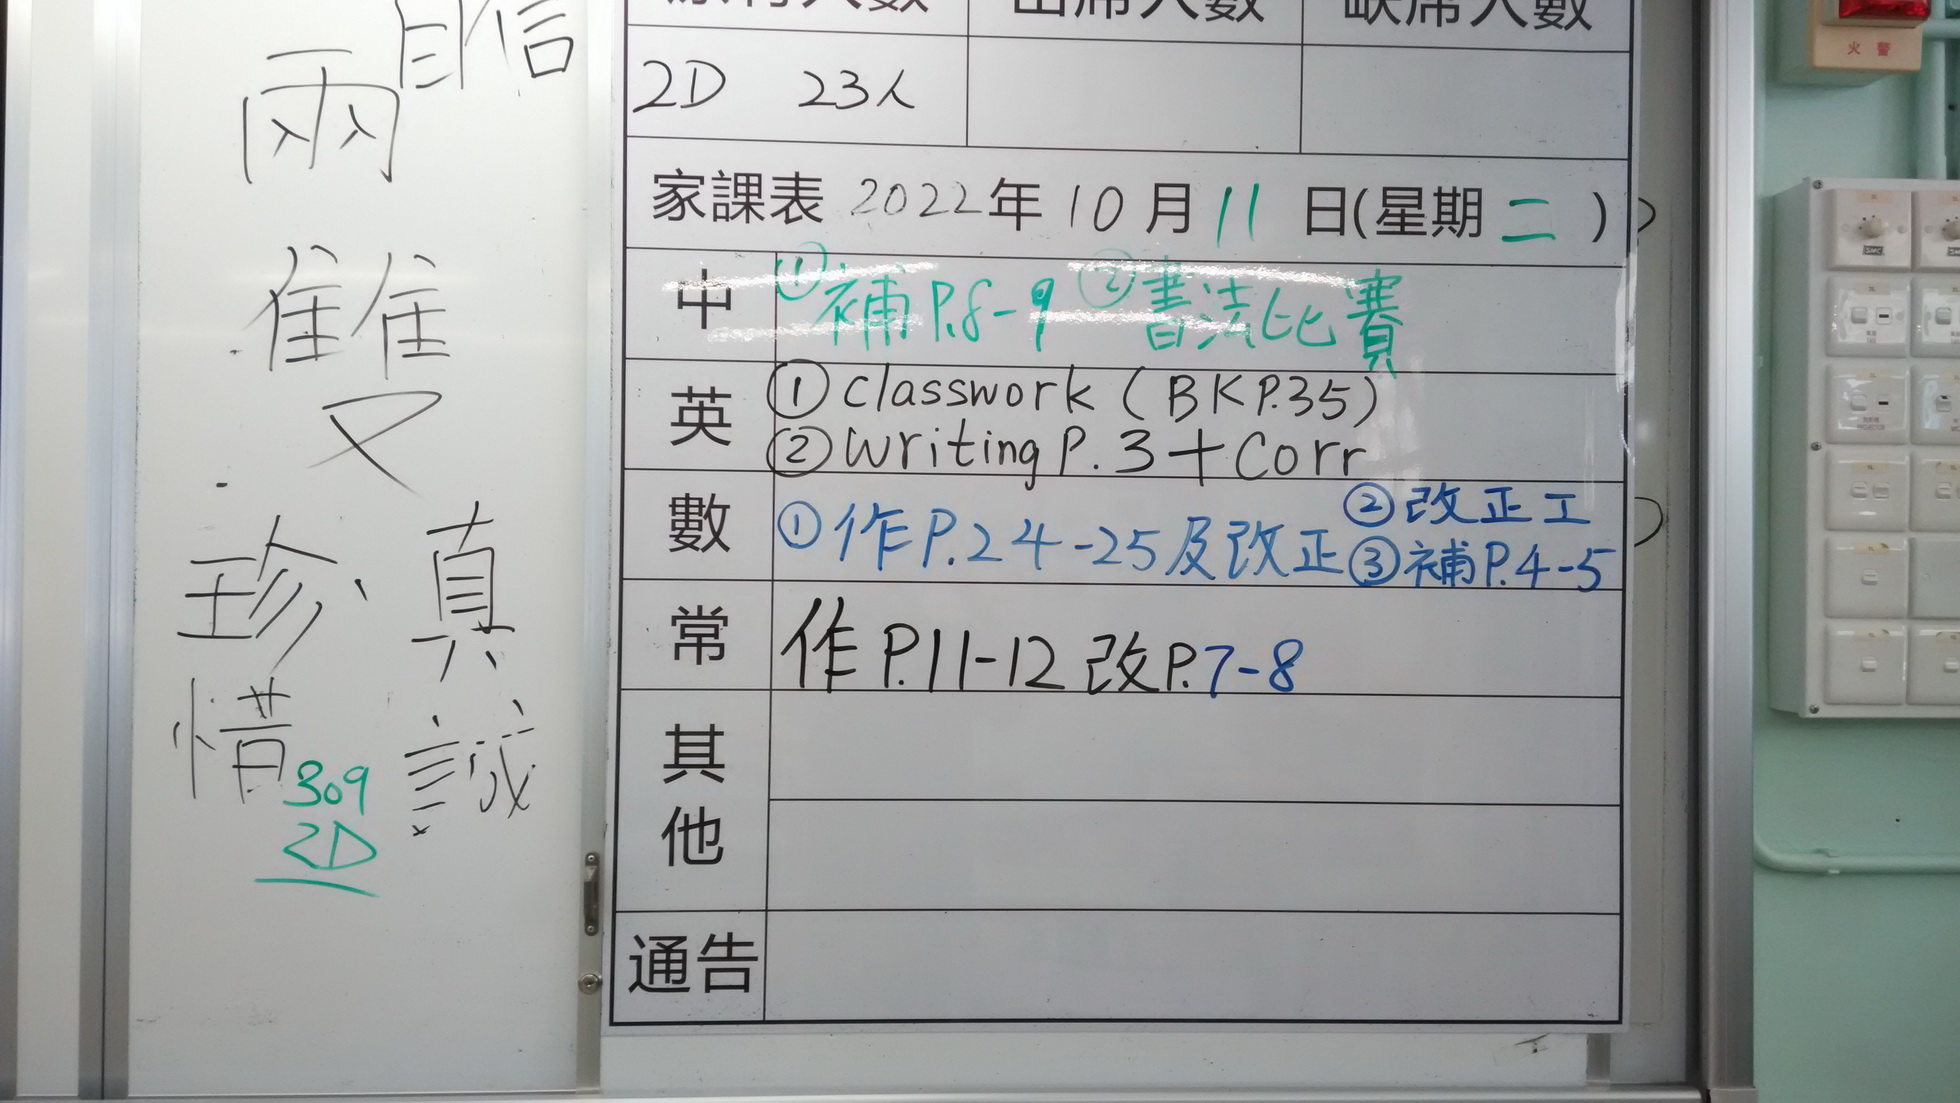 自信
兩
雙
珍 真
惜 誠
309
2D
原有人數 出席人數 缺席人數
2D 23人
家課表 2022年10月11日(星期二)
中 ①補P.8-9 ②書法比賽
英 ①classwork (BKP.35)
②writing P.3+Corr
數 ①作P.24-25及改正 ②改正工
③補P.4-5
常 作P.11-12 改P.7-8
其他
通告
火警